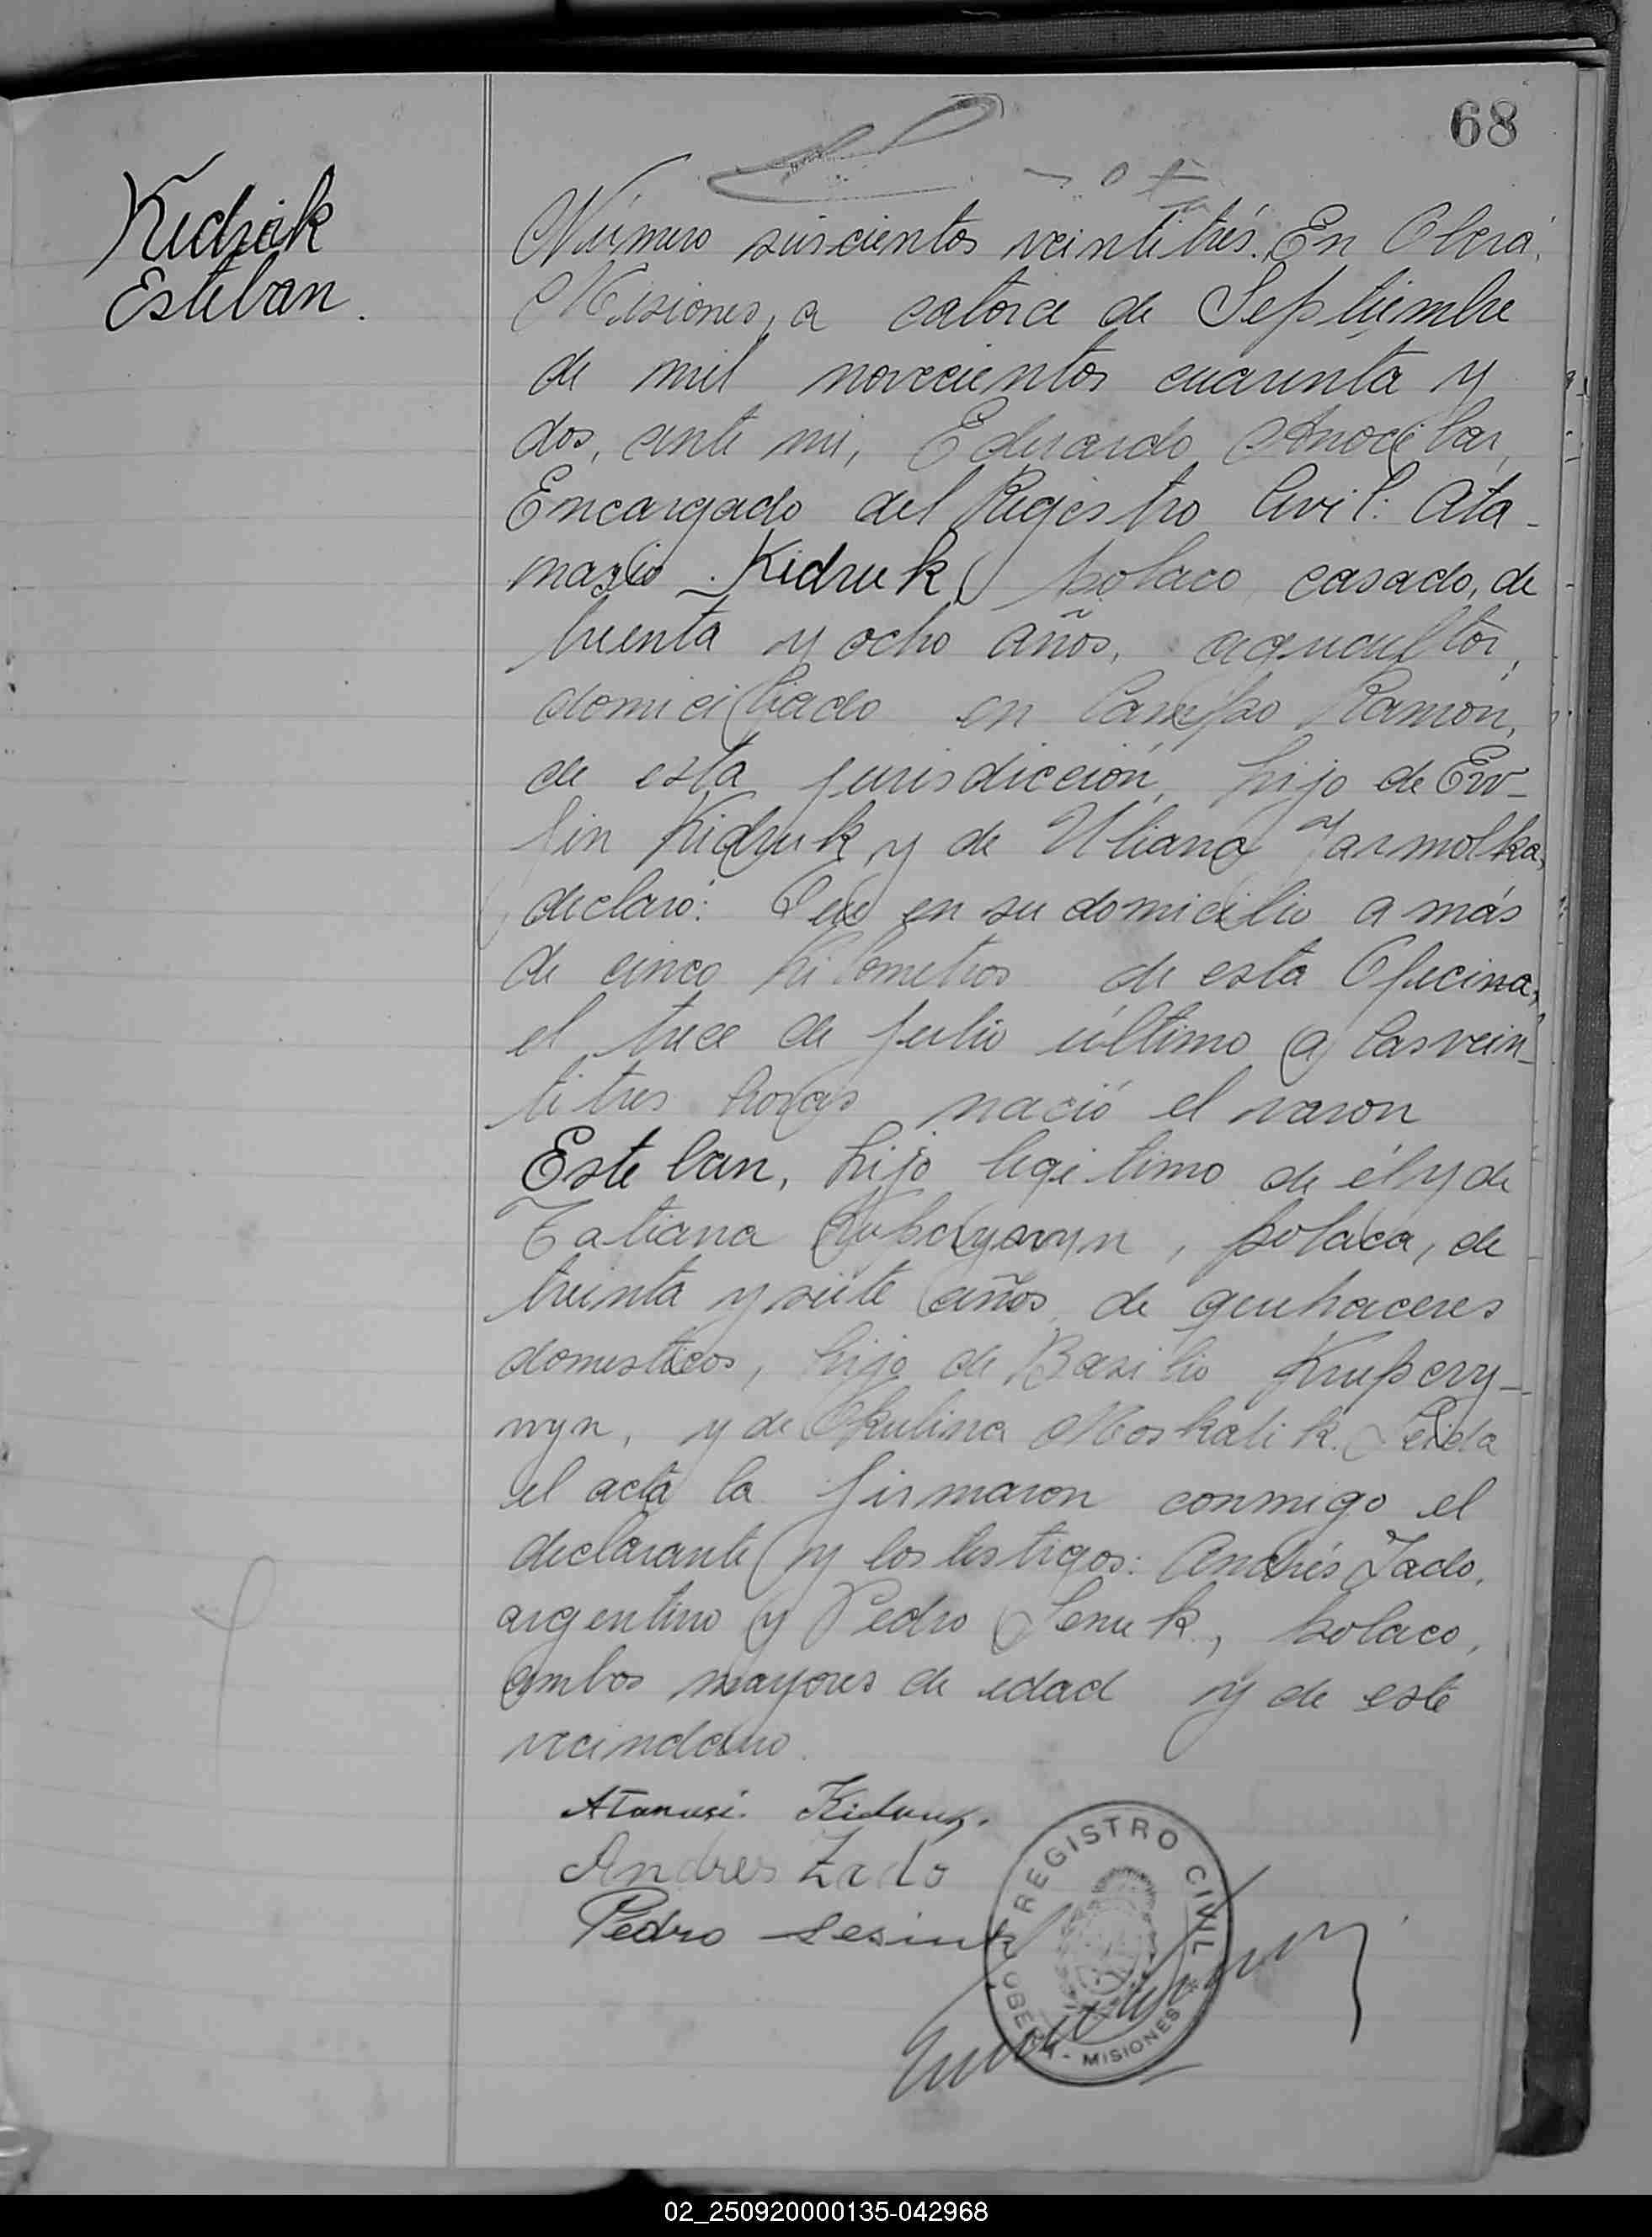 68
Kidruk
Esteban.
Número seiscientos veintitrés. En Oberá,
Misiones, a catorce de Septiembre
de mil novecientos cuarenta y
dos, ante mi, Eduardo
Encargado del Registro Civil: Ata-
nasio Kidruk, polaco, casado, de
treinta y ocho años, agricultor,
domiciliado en Campo Ramón,
de esta jurisdicción, hijo de Ew-
fin Kidruk y de Uliana Jarmolka,
declaró: Que en su domicilio a más
de cinco kilometros de esta Oficina,
el trece de julio último a las vein-
titres horas nació el varon
Esteban, hijo legitimo de él y de
Tatiana, polaca, de
treinta y siete años, de quehaceres
domesticos, hija de Basilio Krupczy-
nyn, y de Akulina Moskalik. Leida
el acta la firmaron conmigo el
declarante y los testigos: Andrés Zado,
argentino y Pedro Senuk, polaco,
ambos mayores de edad y de este
vecindario.
Atanasi Kidruk.
Andres Zado
Pedro Lesiuk
REGISTRO CIVIL
OBERA - MISIONES
02_250920000135-042968